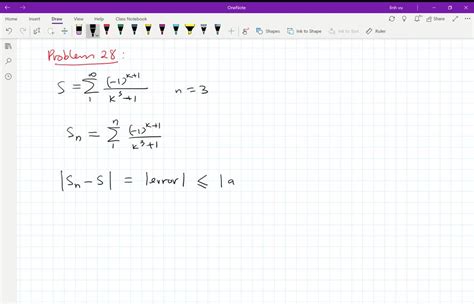 OneNote
linh vu
File Home Insert Draw View Help Class Notebook
Shapes Ink to Shape Ink to Text Math
Problem 28 :
S = ∑_{1}^{∞} (-1)^{k+1} / (k^3 + 1) n = 3
S_n = ∑_{1}^{n} (-1)^{k+1} / (k^3 + 1)
|S_n - S| = |error| ≤ |a